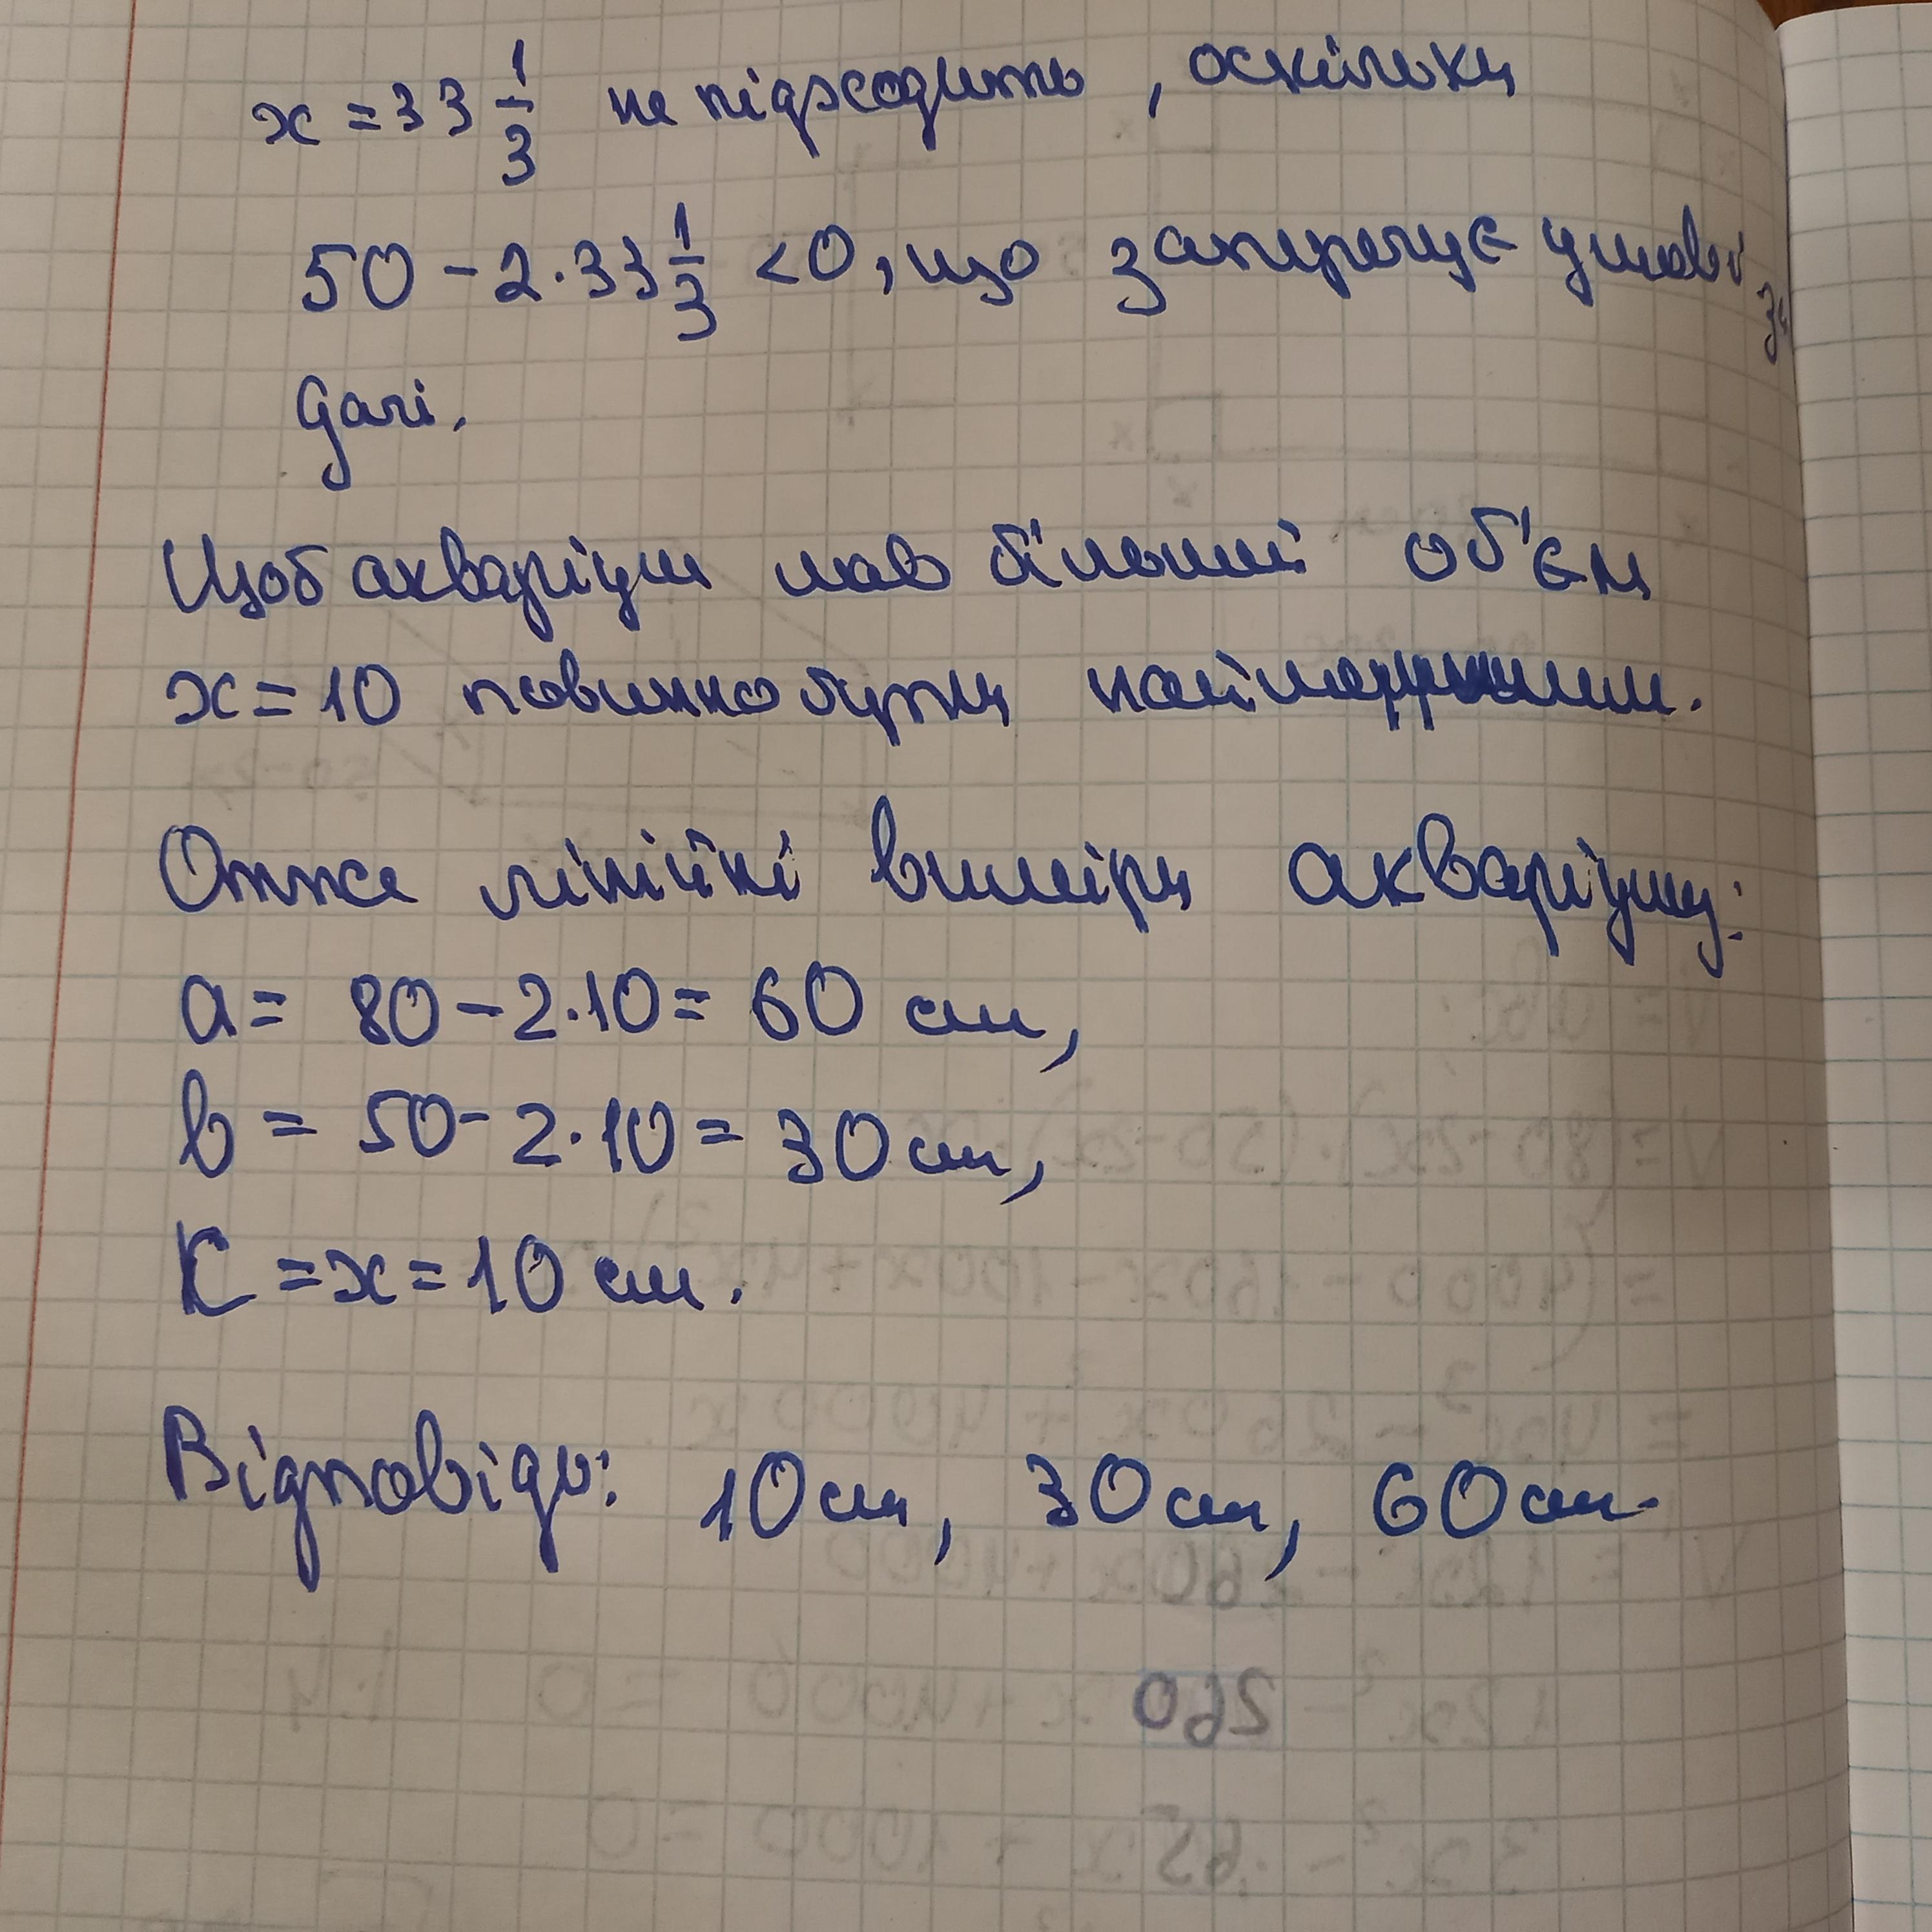 x = 33 1/3 не підходить, оскільки
50 - 2·33 1/3 < 0, що заперечує умові за
дачі.
Щоб акваріум мав більший об'єм
x = 10 повинно бути
Отже лінійні виміри акваріуму:
a = 80 - 2·10 = 60 см,
b = 50 - 2·10 = 30 см,
C = x = 10 см.
Відповідь: 10 см, 30 см, 60 см.